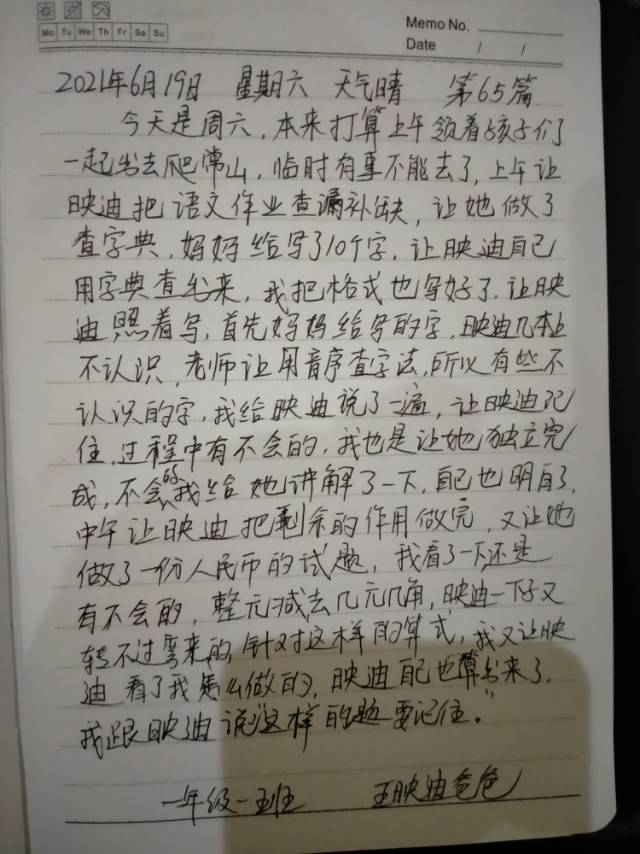 Memo No.
Mo Tu We Th Fr Sa Su
Date / /
2021年6月19日 星期六 天气晴 第65篇
今天是周六,本来打算上午领着孩子们
一起出去爬常山,临时有事不能去了,上午让
映迪把语文作业查漏补缺,让她做了
查字典,妈妈给写了10个字,让映迪自己
用字典查出来,我把格式也写好了,让映
迪照着写,首先妈妈给写的字,映迪几本上
不认识,老师让用音序查字法,所以有些不
认识的字,我给映迪说了一遍,让映迪记
住,过程中有不会的,我也是让她独立完
成,不会的我给她讲解了一下,自己也明白了,
中午让映迪把剩余的作用做完,又让她
做了一份人民币的试题,我看了一下还是
有不会的,整元减去几元几角,映迪一下子又
转不过弯来的,针对这样的算式,我又让映
迪看了我怎么做的,映迪自己也算出来了,
我跟映迪说这样的题要记住。
一年级一班 王映迪爸爸